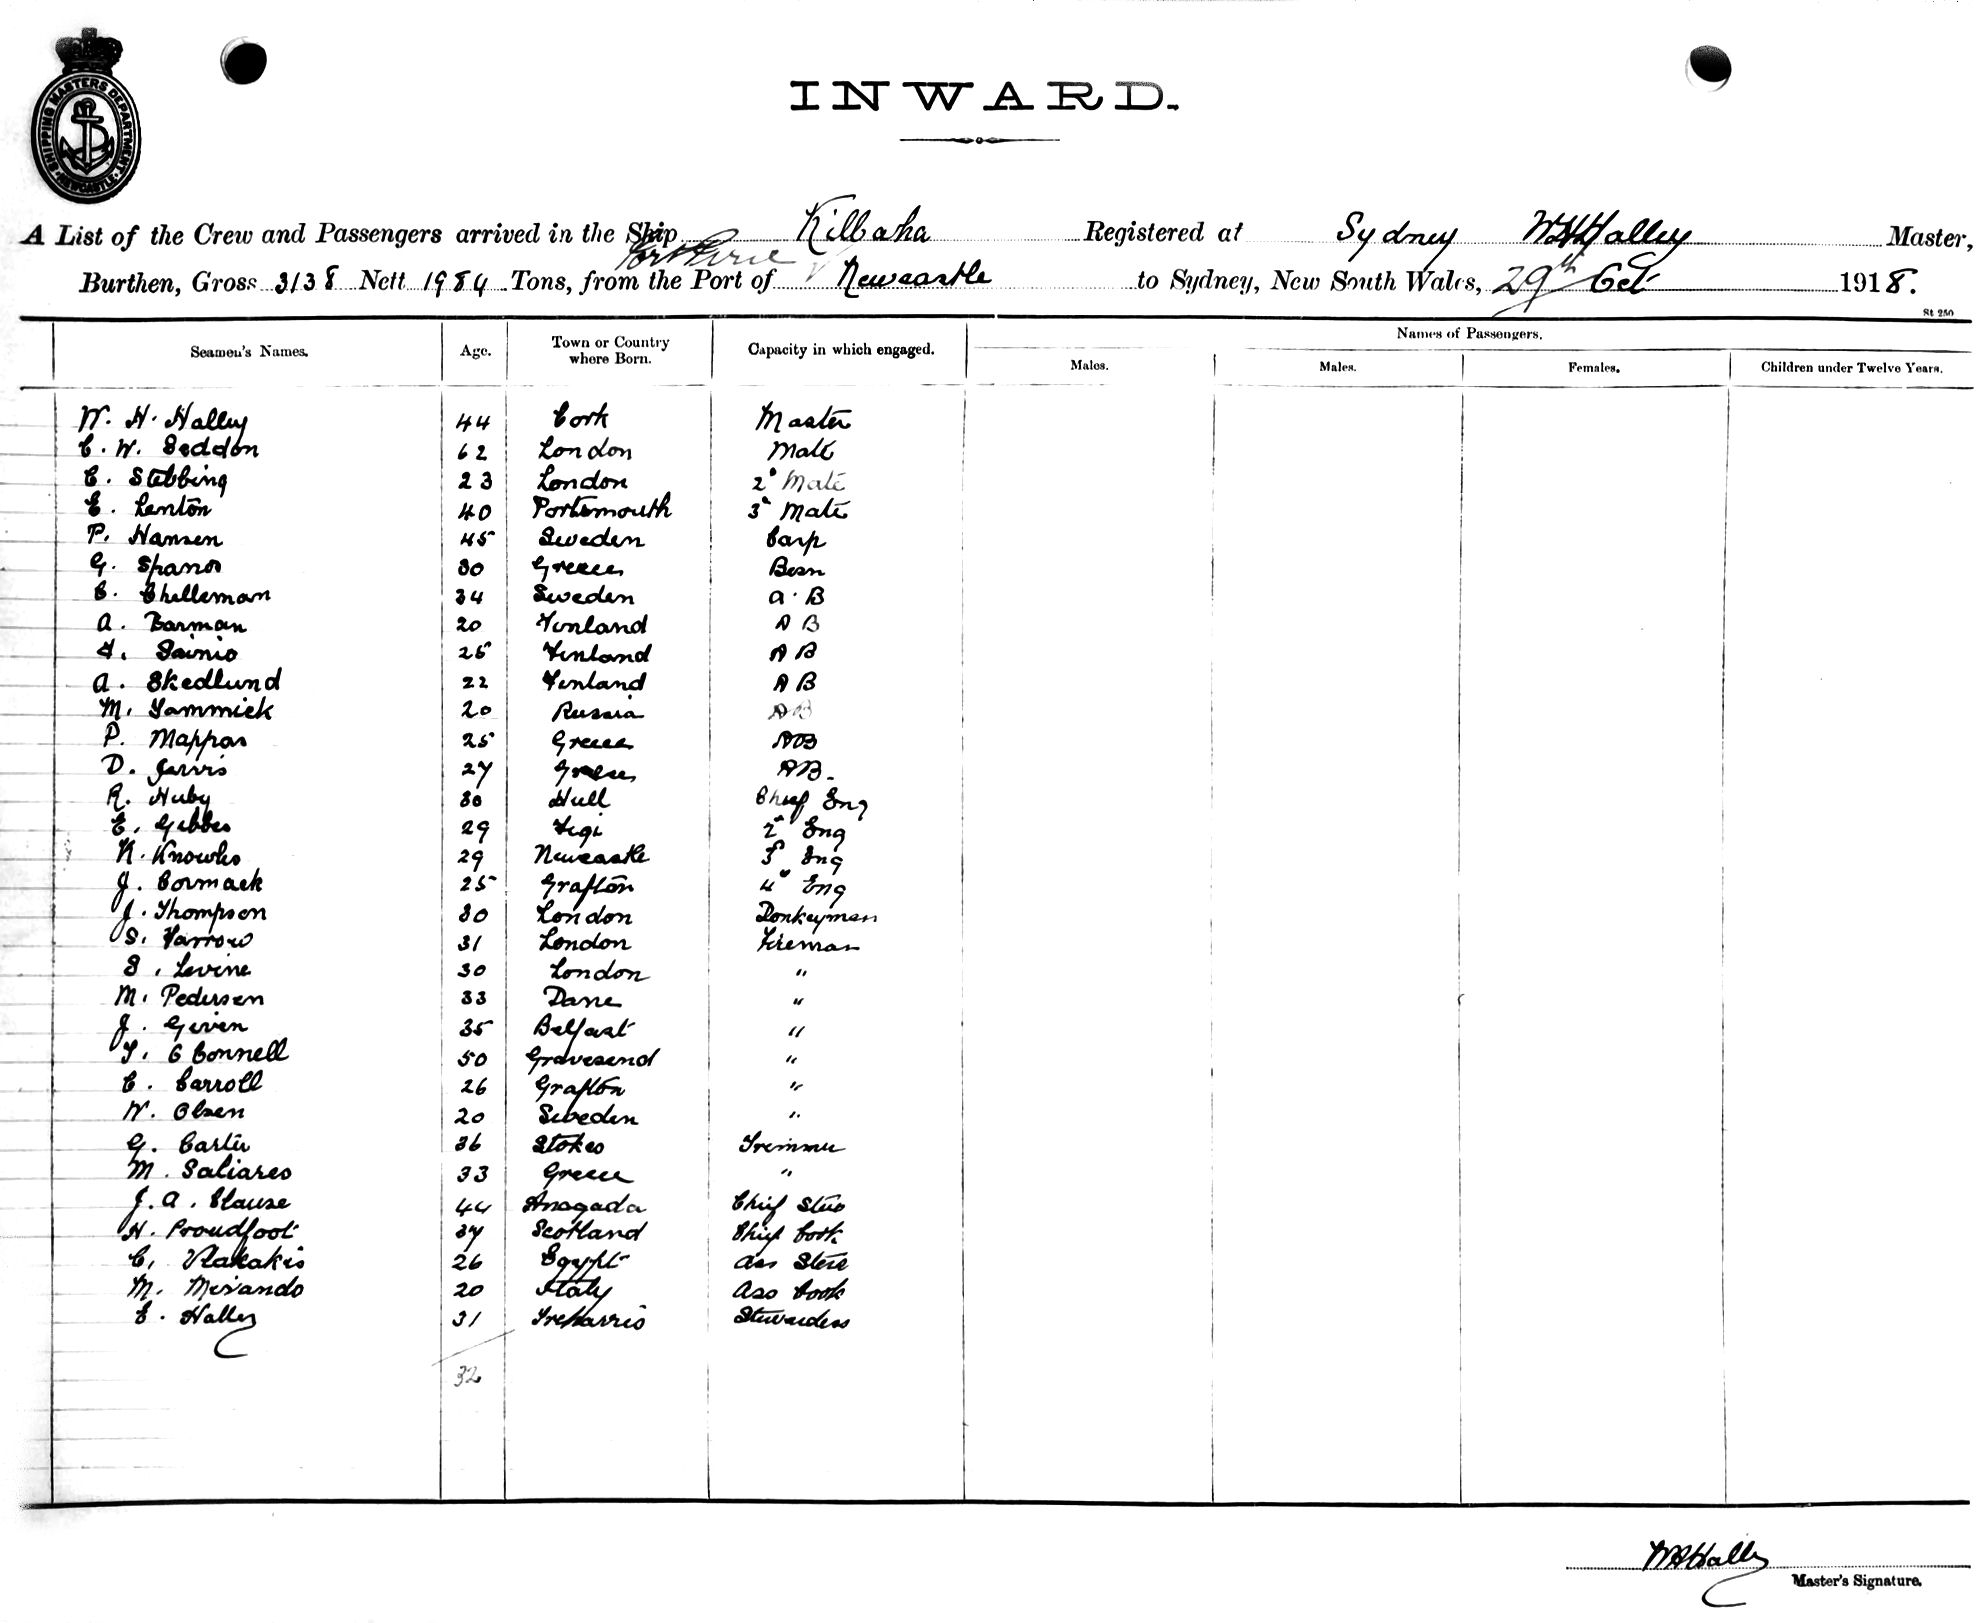 SHIPPING MASTERS DEPARTMENT
NEWCASTLE
INWARD.
A List of the Crew and Passengers arrived in the Ship Kilbaha Registered at Sydney W H Halley Master,
Port Pirie
Burthen, Gross 3138 Nett 1984 Tons, from the Port of Newcastle to Sydney, New South Wales, 29th Oct 1918.
St 250
Seamen's Names. Age. Town or Country where Born. Capacity in which engaged. Names of Passengers.
Males. Males. Females. Children under Twelve Years.
W. H. Halley 44 Cork Master
C. W. Seddon 62 London Mate
C. Stebbing 23 London 2d Mate
E. Lenton 40 Portsmouth 3d Mate
P. Hansen 45 Sweden Carp
G. Spanos 30 Greece Bosn
C. Chelleman 34 Sweden A. B
A. Barman 20 Finland A B
F. Sainio 25 Finland A B
A. Skedlund 22 Finland A B
M. Tammick 20 Russia A B
P. Mappas 25 Greece AB
D. Jarvis 27 Greece AB.
R. Huby 30 Hull Chief Eng
E. Gibbes 29 Figi 2d Eng
K. Knowles 29 Newcastle 3d Eng
J. Cormack 25 Grafton 4th Eng
J. Thompson 30 London Donkeyman
S. Farrow 31 London Fireman
S. Levine 30 London "
M. Pedersen 33 Dane "
J. Given 35 Belfast "
T. O Connell 50 Gravesend "
C. Carroll 26 Grafton "
W. Olsen 20 Sweden "
G. Carter 36 Stokes Trimmer
M. Saliares 33 Greece "
J. A. Clause 44 Anagada Chief Stew
H. Proudfoot 37 Scotland Chief Cook
C. Vlakakis 26 Egypt Ass Stew
M. Mirando 20 Italy Ass Cook
E. Halley 31 Treharris Stewardess
32
WHHalley
Master's Signature.